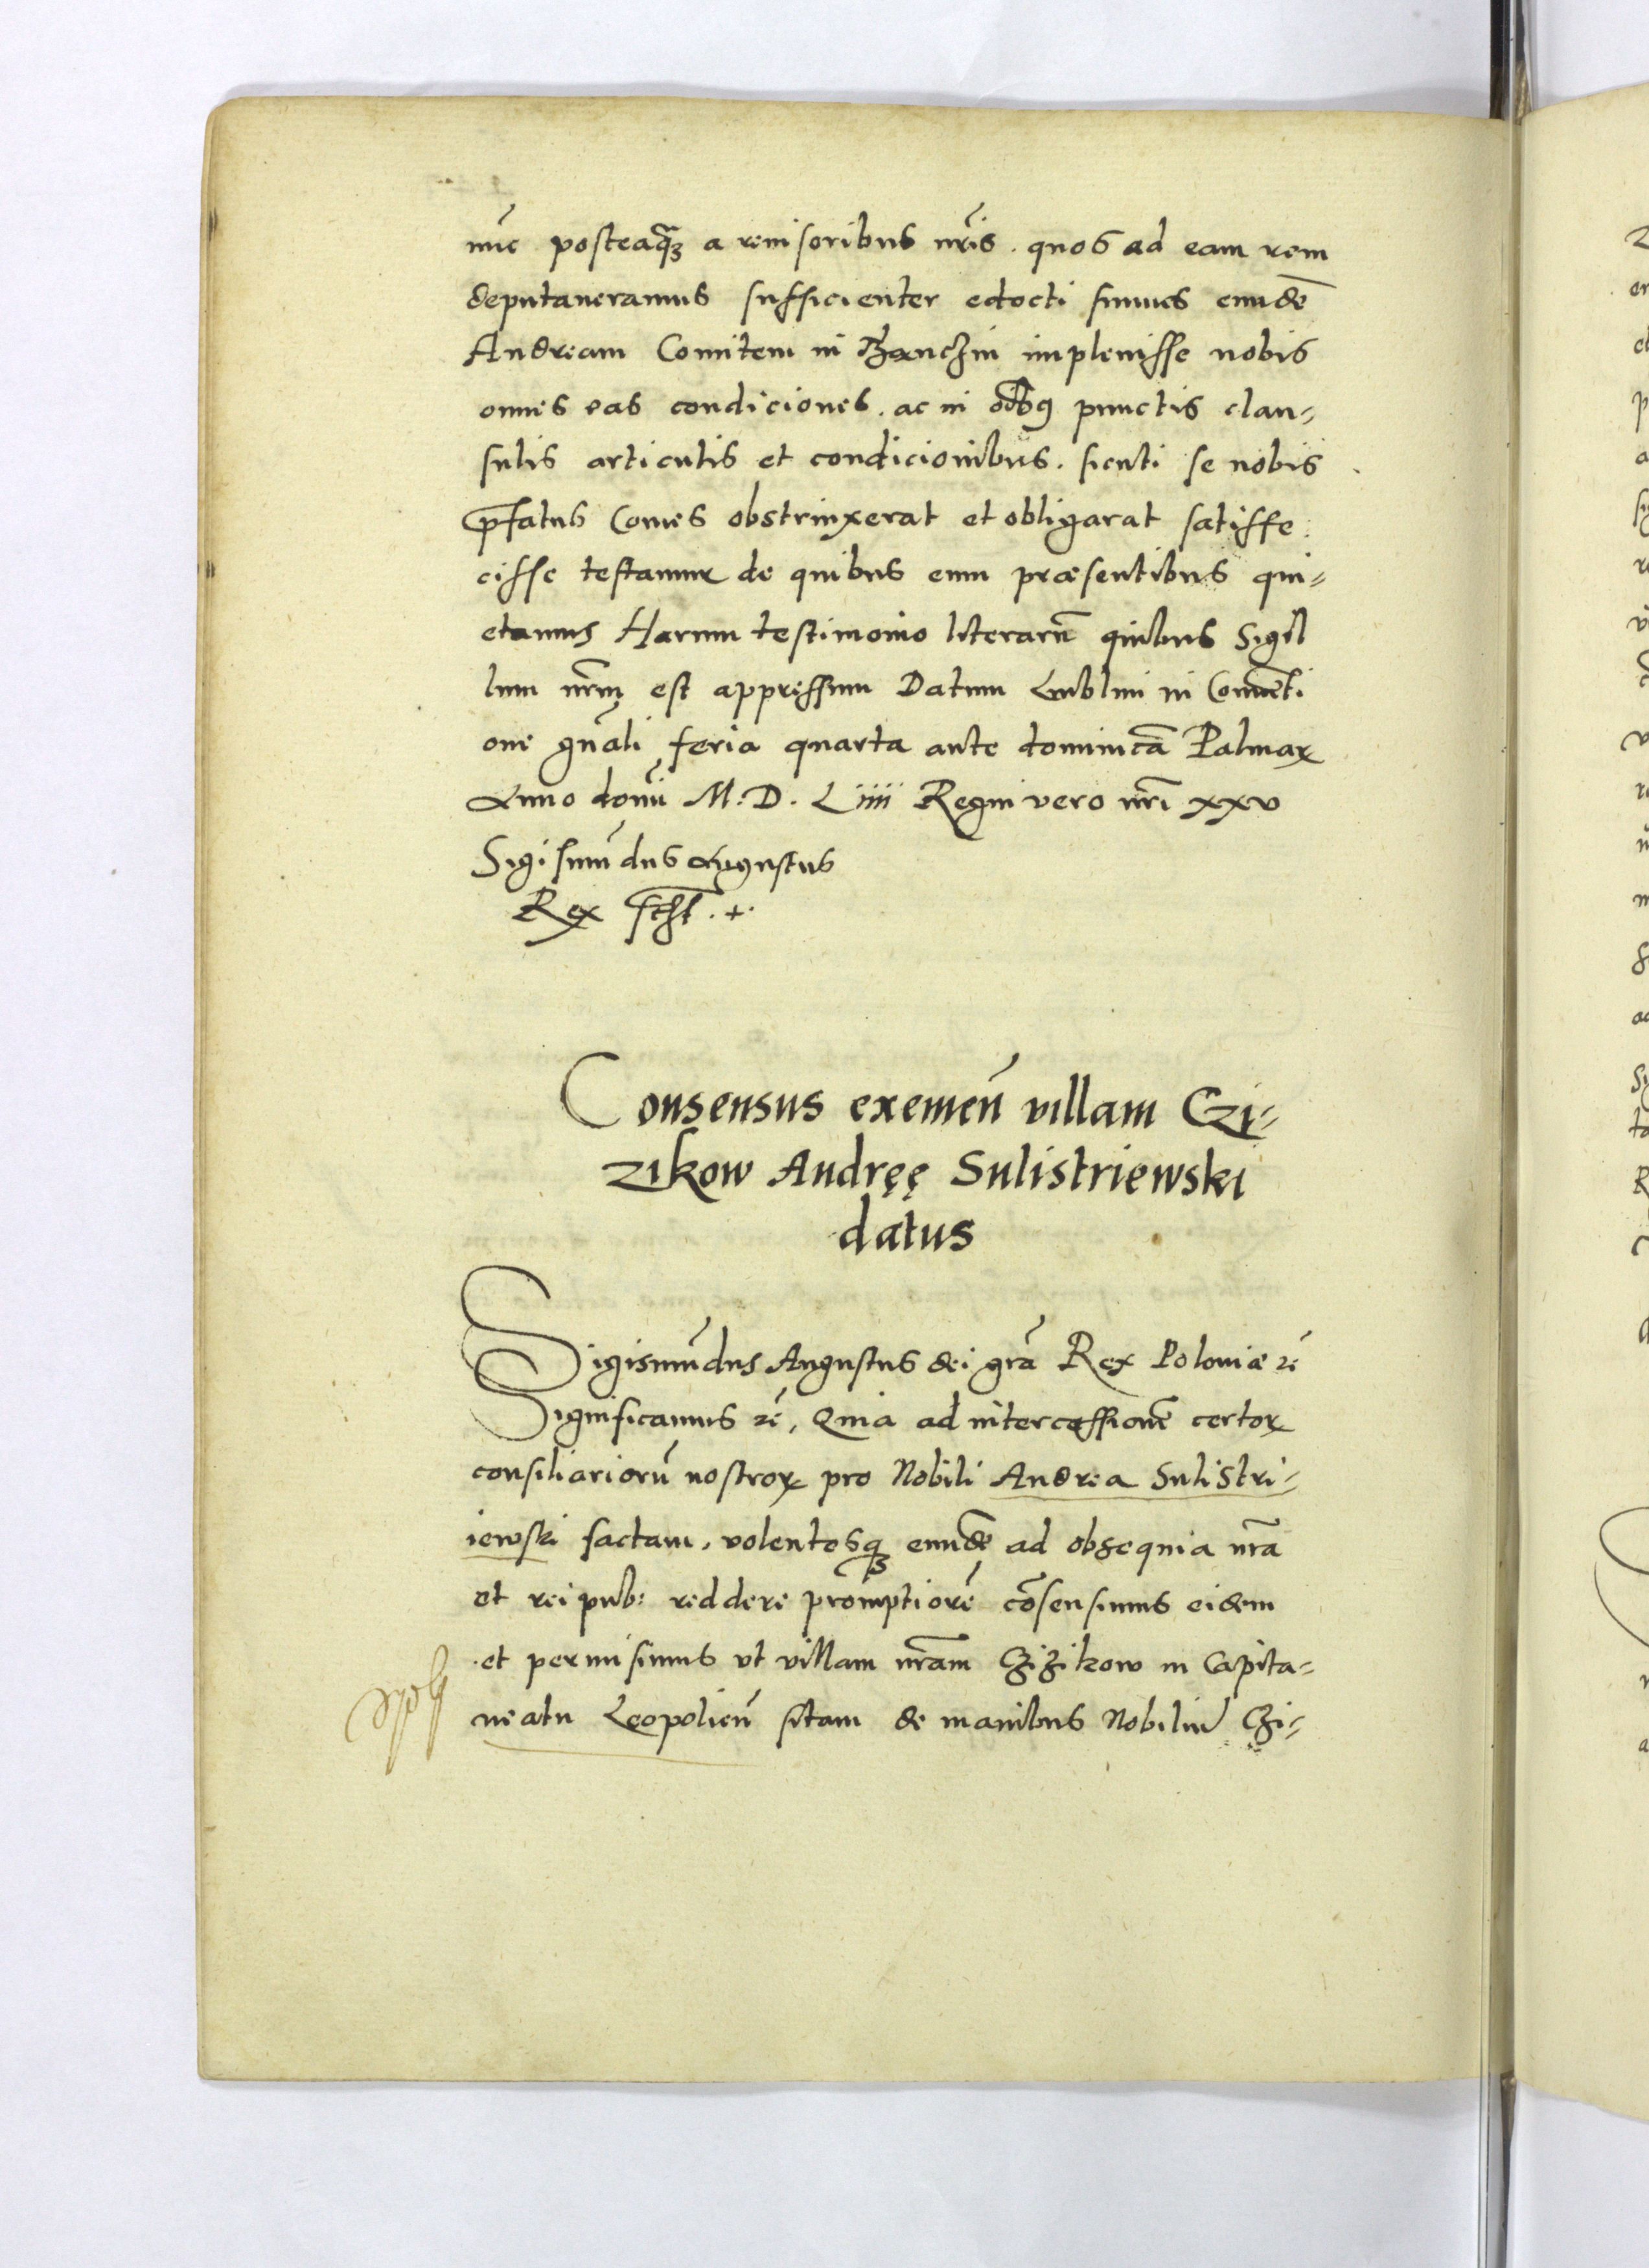 nuc̄ posteaqȝ a reuisoribus nr̄is. quos ad eam rem
deputaueramus sufficienter edocti sumus eundē
Andream Comitem in Thanczin impleuisse nobis
omnes eas condiciones. ac in oībꝯ punctis clau-
sulis articulis et condicionibus. sicuti se nobis
p̄fatus Comes obstrinxerat et obligarat satisfe
cisse testamur de quibus eum præsentibus qui-
etamus Harum testimonio literarū quibus Sigil
lum nr̄m est appressum Datum Lublini in Conuēti
one gnāli feria quarta ante dominicā Palmaꝝ
Anno domī M.D. Liiii Regni vero nr̄i xxv
Sigismūdus Augustus
Rex sc̄ht .+.
Consensus exemeñ villam Czi-
zikow Andręę Sulistriewski
datus
Sigismūdus Augustus dei gr̄a Rex Poloniæ ꝛc̄
Significamus ꝛc̄, Quia ad intercessionē certoꝝ
consiliariorū nostroꝝ pro Nobili Andrea Sulistri-
iewski factam, volentesqȝ eundē ad obsequia nr̄a
et rei pub: reddere promptiorē cōsensimus eidem
et permisimus vt villam nr̄am Czizikow in Capita-
neatu Leopolieñ sitam de manibus Nobiliū Czi-